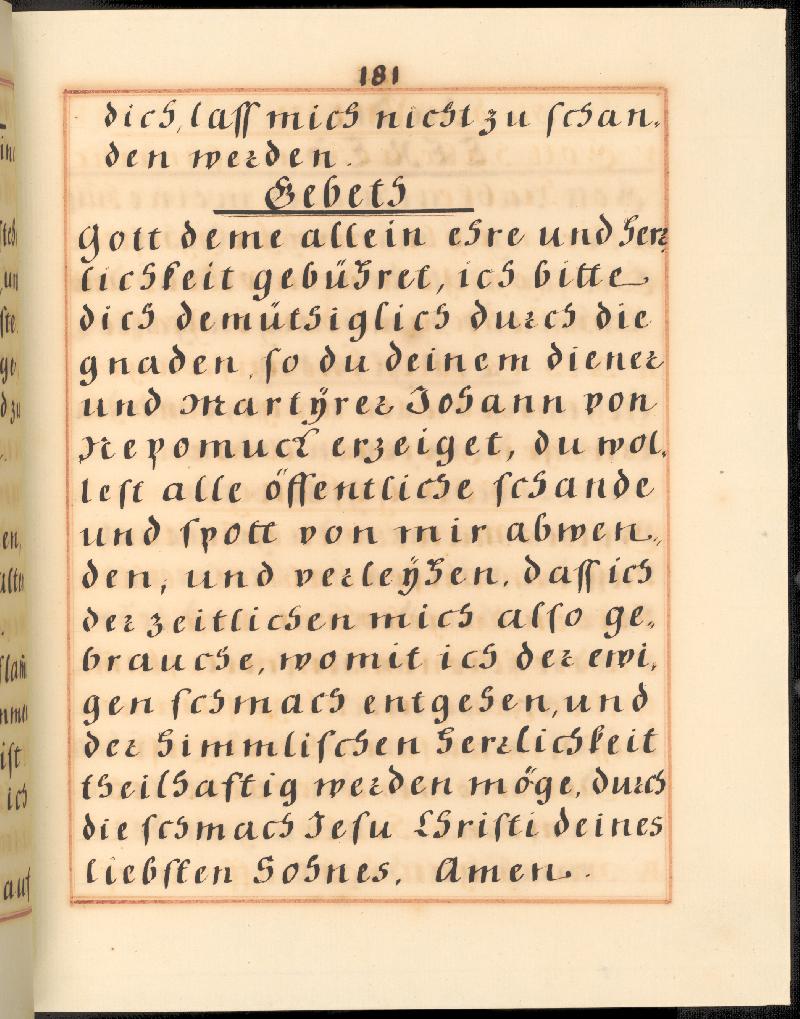 181
dich, lass mich nicht zu schan-
den werden.
Gebeth
Gott deme allein ehre und herr-
lichkeit gebühret, ich bitte
dich demüthiglich durch die
gnaden, so du deinem diener
und Martÿrer Johann von
Nepomuck erzeiget, du wol-
lest alle öffentliche schande
und spott von mir abwen-
den, und verleÿhen, dass ich
der zeitlichen mich also ge-
brauche, womit ich der ewi-
gen schmach entgehen, und
der himmlischen herrlichkeit
theilhaftig werden möge, durch
die schmach Jesu Christi deines
liebsten Sohnes. Amen.